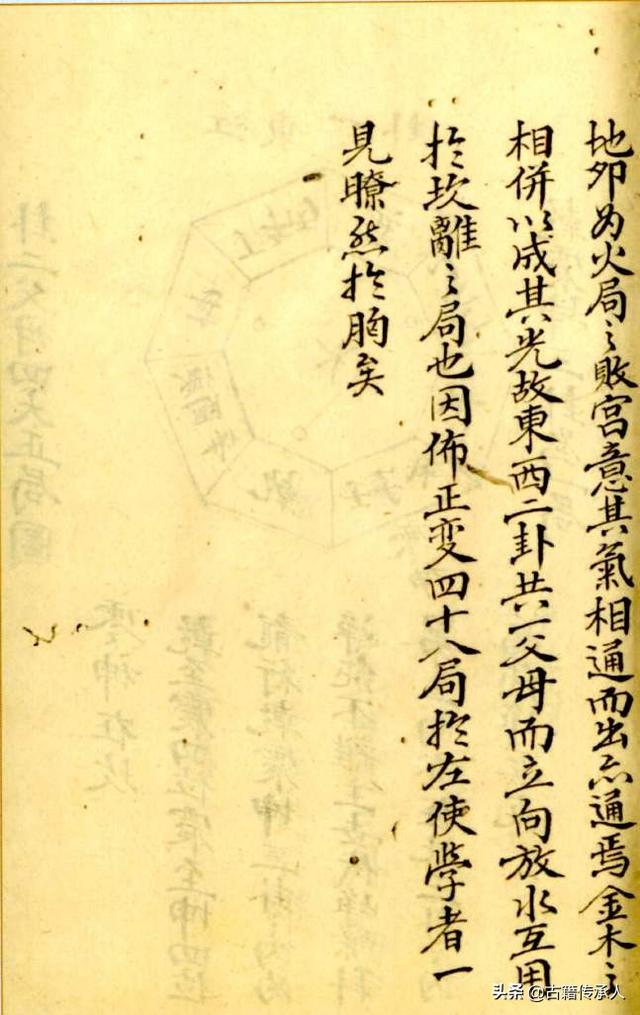 地卯為火局之敗宮意其氣相通而出亦通焉金木之
相併以成其光故東西二卦共一父母而立向放水互用
於坎離之局也因佈正变四十八局於左使學者一
見瞭然於胸矣
头条 @古籍传承人